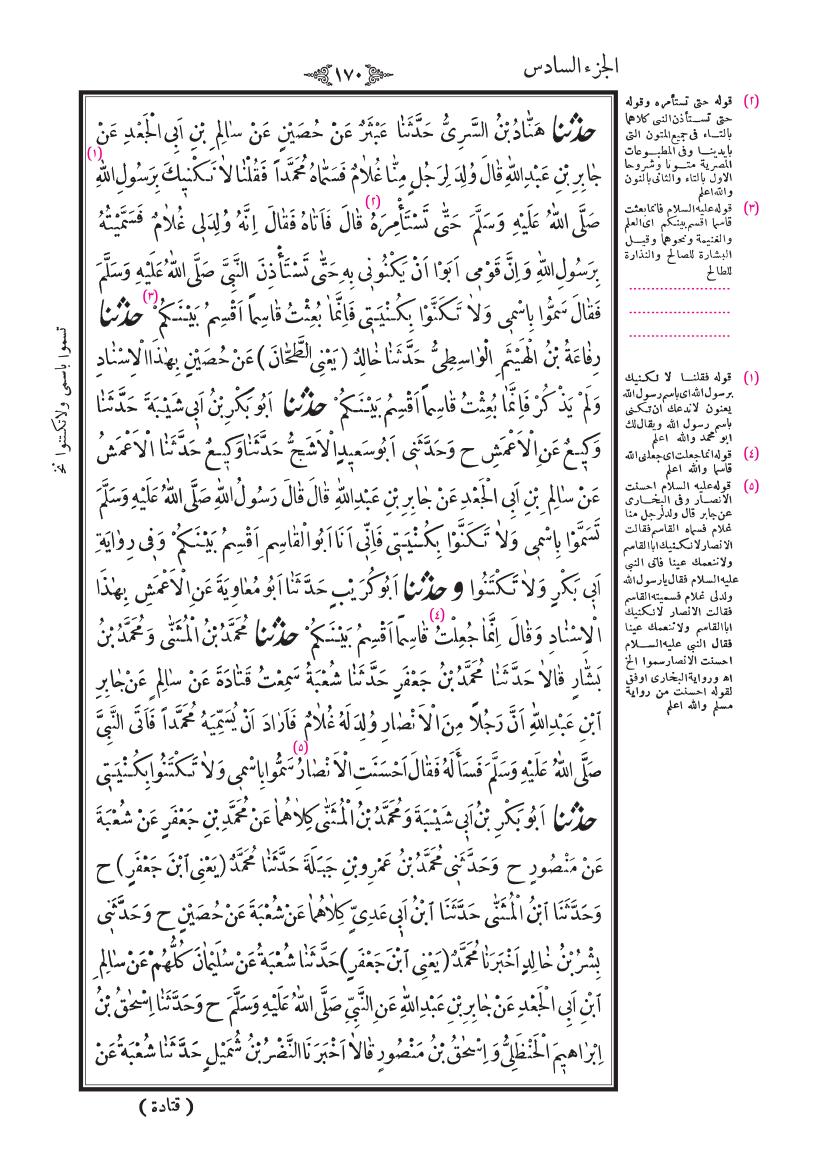 الجزء السادس
١٧٠
حَدَّثَنَا هَنَّادُ بْنُ السَّرِىِّ حَدَّثَنَا عَبْثَرٌ عَنْ حُصَيْنٍ عَنْ سَالِمِ بْنِ اَبِى الْجَعْدِ عَنْ
جَابِرِ بْنِ عَبْدِاللّٰهِ قَالَ وُلِدَ لِرَجُلٍ مِنَّا غُلَامٌ فَسَمَّاهُ مُحَمَّداً فَقُلْنَا لَا نَكْنِيكَ بِرَسُولِ اللّٰهِ (١)
صَلَّى اللّٰهُ عَلَيْهِ وَسَلَّمَ حَتَّى تَسْتَأْمِرَهُ (٢) قَالَ فَاَتَاهُ فَقَالَ اِنَّهُ وُلِدَ لِى غُلَامٌ فَسَمَّيْتُهُ
بِرَسُولِ اللّٰهِ وَاِنَّ قَوْمِى اَبَوْا اَنْ يَكْنُونِى بِهِ حَتَّى تَسْتَأْذِنَ النَّبِىَّ صَلَّى اللّٰهُ عَلَيْهِ وَسَلَّمَ
فَقَالَ سَمُّوا بِاسْمِى وَلَا تَكَنَّوْا بِكُنْيَتِى فَاِنَّمَا بُعِثْتُ قَاسِماً اَقْسِمُ بَيْنَكُمْ (٣) حَدَّثَنَا
رِفَاعَةُ بْنُ الْهَيْثَمِ الْوَاسِطِىُّ حَدَّثَنَا خَالِدٌ (يَعْنِى الطَّحَّانَ) عَنْ حُصَيْنٍ بِهٰذَا الْاِسْنَادِ
وَلَمْ يَذْكُرْ فَاِنَّمَا بُعِثْتُ قَاسِماً اَقْسِمُ بَيْنَكُمْ حَدَّثَنَا اَبُو بَكْرِ بْنُ اَبِى شَيْبَةَ حَدَّثَنَا
وَكِيعٌ عَنِ الْاَعْمَشِ ح وَحَدَّثَنِى اَبُو سَعِيدٍ الْاَشَجُّ حَدَّثَنَا وَكِيعٌ حَدَّثَنَا الْاَعْمَشُ
عَنْ سَالِمِ بْنِ اَبِى الْجَعْدِ عَنْ جَابِرِ بْنِ عَبْدِاللّٰهِ قَالَ قَالَ رَسُولُ اللّٰهِ صَلَّى اللّٰهُ عَلَيْهِ وَسَلَّمَ
تَسَمَّوْا بِاسْمِى وَلَا تَكَنَّوْا بِكُنْيَتِى فَاِنِّى اَنَا اَبُوالْقَاسِمِ اَقْسِمُ بَيْنَكُمْ وَفِى رِوَايَةِ
اَبِى بَكْرٍ وَلَا تَكْتَنُوا وَحَدَّثَنَا اَبُو كُرَيْبٍ حَدَّثَنَا اَبُو مُعَاوِيَةَ عَنِ الْاَعْمَشِ بِهٰذَا
الْاِسْنَادِ وَقَالَ اِنَّمَا جُعِلْتُ (٤) قَاسِماً اَقْسِمُ بَيْنَكُمْ حَدَّثَنَا مُحَمَّدُ بْنُ الْمُثَنَّى وَمُحَمَّدُ بْنُ
بَشَّارٍ قَالَا حَدَّثَنَا مُحَمَّدُ بْنُ جَعْفَرٍ حَدَّثَنَا شُعْبَةُ سَمِعْتُ قَتَادَةَ عَنْ سَالِمٍ عَنْ جَابِرِ
ابْنِ عَبْدِاللّٰهِ اَنَّ رَجُلاً مِنَ الْاَنْصَارِ وُلِدَ لَهُ غُلَامٌ فَاَرَادَ اَنْ يُسَمِّيَهُ مُحَمَّداً فَاَتَى النَّبِىَّ
صَلَّى اللّٰهُ عَلَيْهِ وَسَلَّمَ فَسَأَلَهُ فَقَالَ اَحْسَنَتِ الْاَنْصَارُ (٥) سَمُّوا بِاسْمِى وَلَا تَكْتَنُوا بِكُنْيَتِى
حَدَّثَنَا اَبُو بَكْرِ بْنُ اَبِى شَيْبَةَ وَمُحَمَّدُ بْنُ الْمُثَنَّى كِلَاهُمَا عَنْ مُحَمَّدِ بْنِ جَعْفَرٍ عَنْ شُعْبَةَ
عَنْ مَنْصُورٍ ح وَحَدَّثَنِى مُحَمَّدُ بْنُ عَمْرِو بْنِ جَبَلَةَ حَدَّثَنَا مُحَمَّدٌ (يَعْنِى ابْنَ جَعْفَرٍ) ح
وَحَدَّثَنَا ابْنُ الْمُثَنَّى حَدَّثَنَا ابْنُ اَبِى عَدِىٍّ كِلَاهُمَا عَنْ شُعْبَةَ عَنْ حُصَيْنٍ ح وَحَدَّثَنِى
بِشْرُ بْنُ خَالِدٍ اَخْبَرَنَا مُحَمَّدٌ (يَعْنِى ابْنَ جَعْفَرٍ) حَدَّثَنَا شُعْبَةُ عَنْ سُلَيْمَانَ كُلُّهُمْ عَنْ سَالِمِ
ابْنِ اَبِى الْجَعْدِ عَنْ جَابِرِ بْنِ عَبْدِاللّٰهِ عَنِ النَّبِىِّ صَلَّى اللّٰهُ عَلَيْهِ وَسَلَّمَ ح وَحَدَّثَنَا اِسْحٰقُ بْنُ
اِبْرَاهِيمَ الْحَنْظَلِىُّ وَاِسْحٰقُ بْنُ مَنْصُورٍ قَالَا اَخْبَرَنَا النَّضْرُ بْنُ شُمَيْلٍ حَدَّثَنَا شُعْبَةُ عَنْ
(قتادة)
(٢) قوله حتى تستأمره وقوله
حتى تستأذن النبى كلاهما
بالتاء فى جميع المتون التى
بايدينا وفى المطبوعات
المصرية متونا وشروحا
الاول بالتاء والثانى بالنون
والله اعلم
(٣) قوله عليه السلام فانما بعثت
قاسما اقسم بينكم اى العلم
والغنيمة ونحوها وقيل
البشارة للصالح والنذارة
للطالح
(١) قوله فقلنا لا نكنيك
برسول الله اى باسم رسول الله
يعنون لاندعك ان تكنى
باسم رسول الله ويقال لك
ابو محمد والله اعلم
(٤) قوله انما جعلت اى جعلنى الله
قاسما والله اعلم
(٥) قوله عليه السلام احسنت
الانصار وفى البخارى
عن جابر قال ولد لرجل منا
غلام فسماه القاسم فقالت
الانصار لا نكنيك ابا القاسم
ولا ننعمك عينا فاتى النبى
عليه السلام فقال يا رسول الله
ولد لى غلام فسميته القاسم
فقالت الانصار لا نكنيك
ابا القاسم ولا ننعمك عينا
فقال النبى عليه السلام
احسنت الانصار سموا الخ
اه ورواية البخارى اوفق
لقوله احسنت من رواية
مسلم والله اعلم
تسموا باسمى ولا تكتنوا نخ